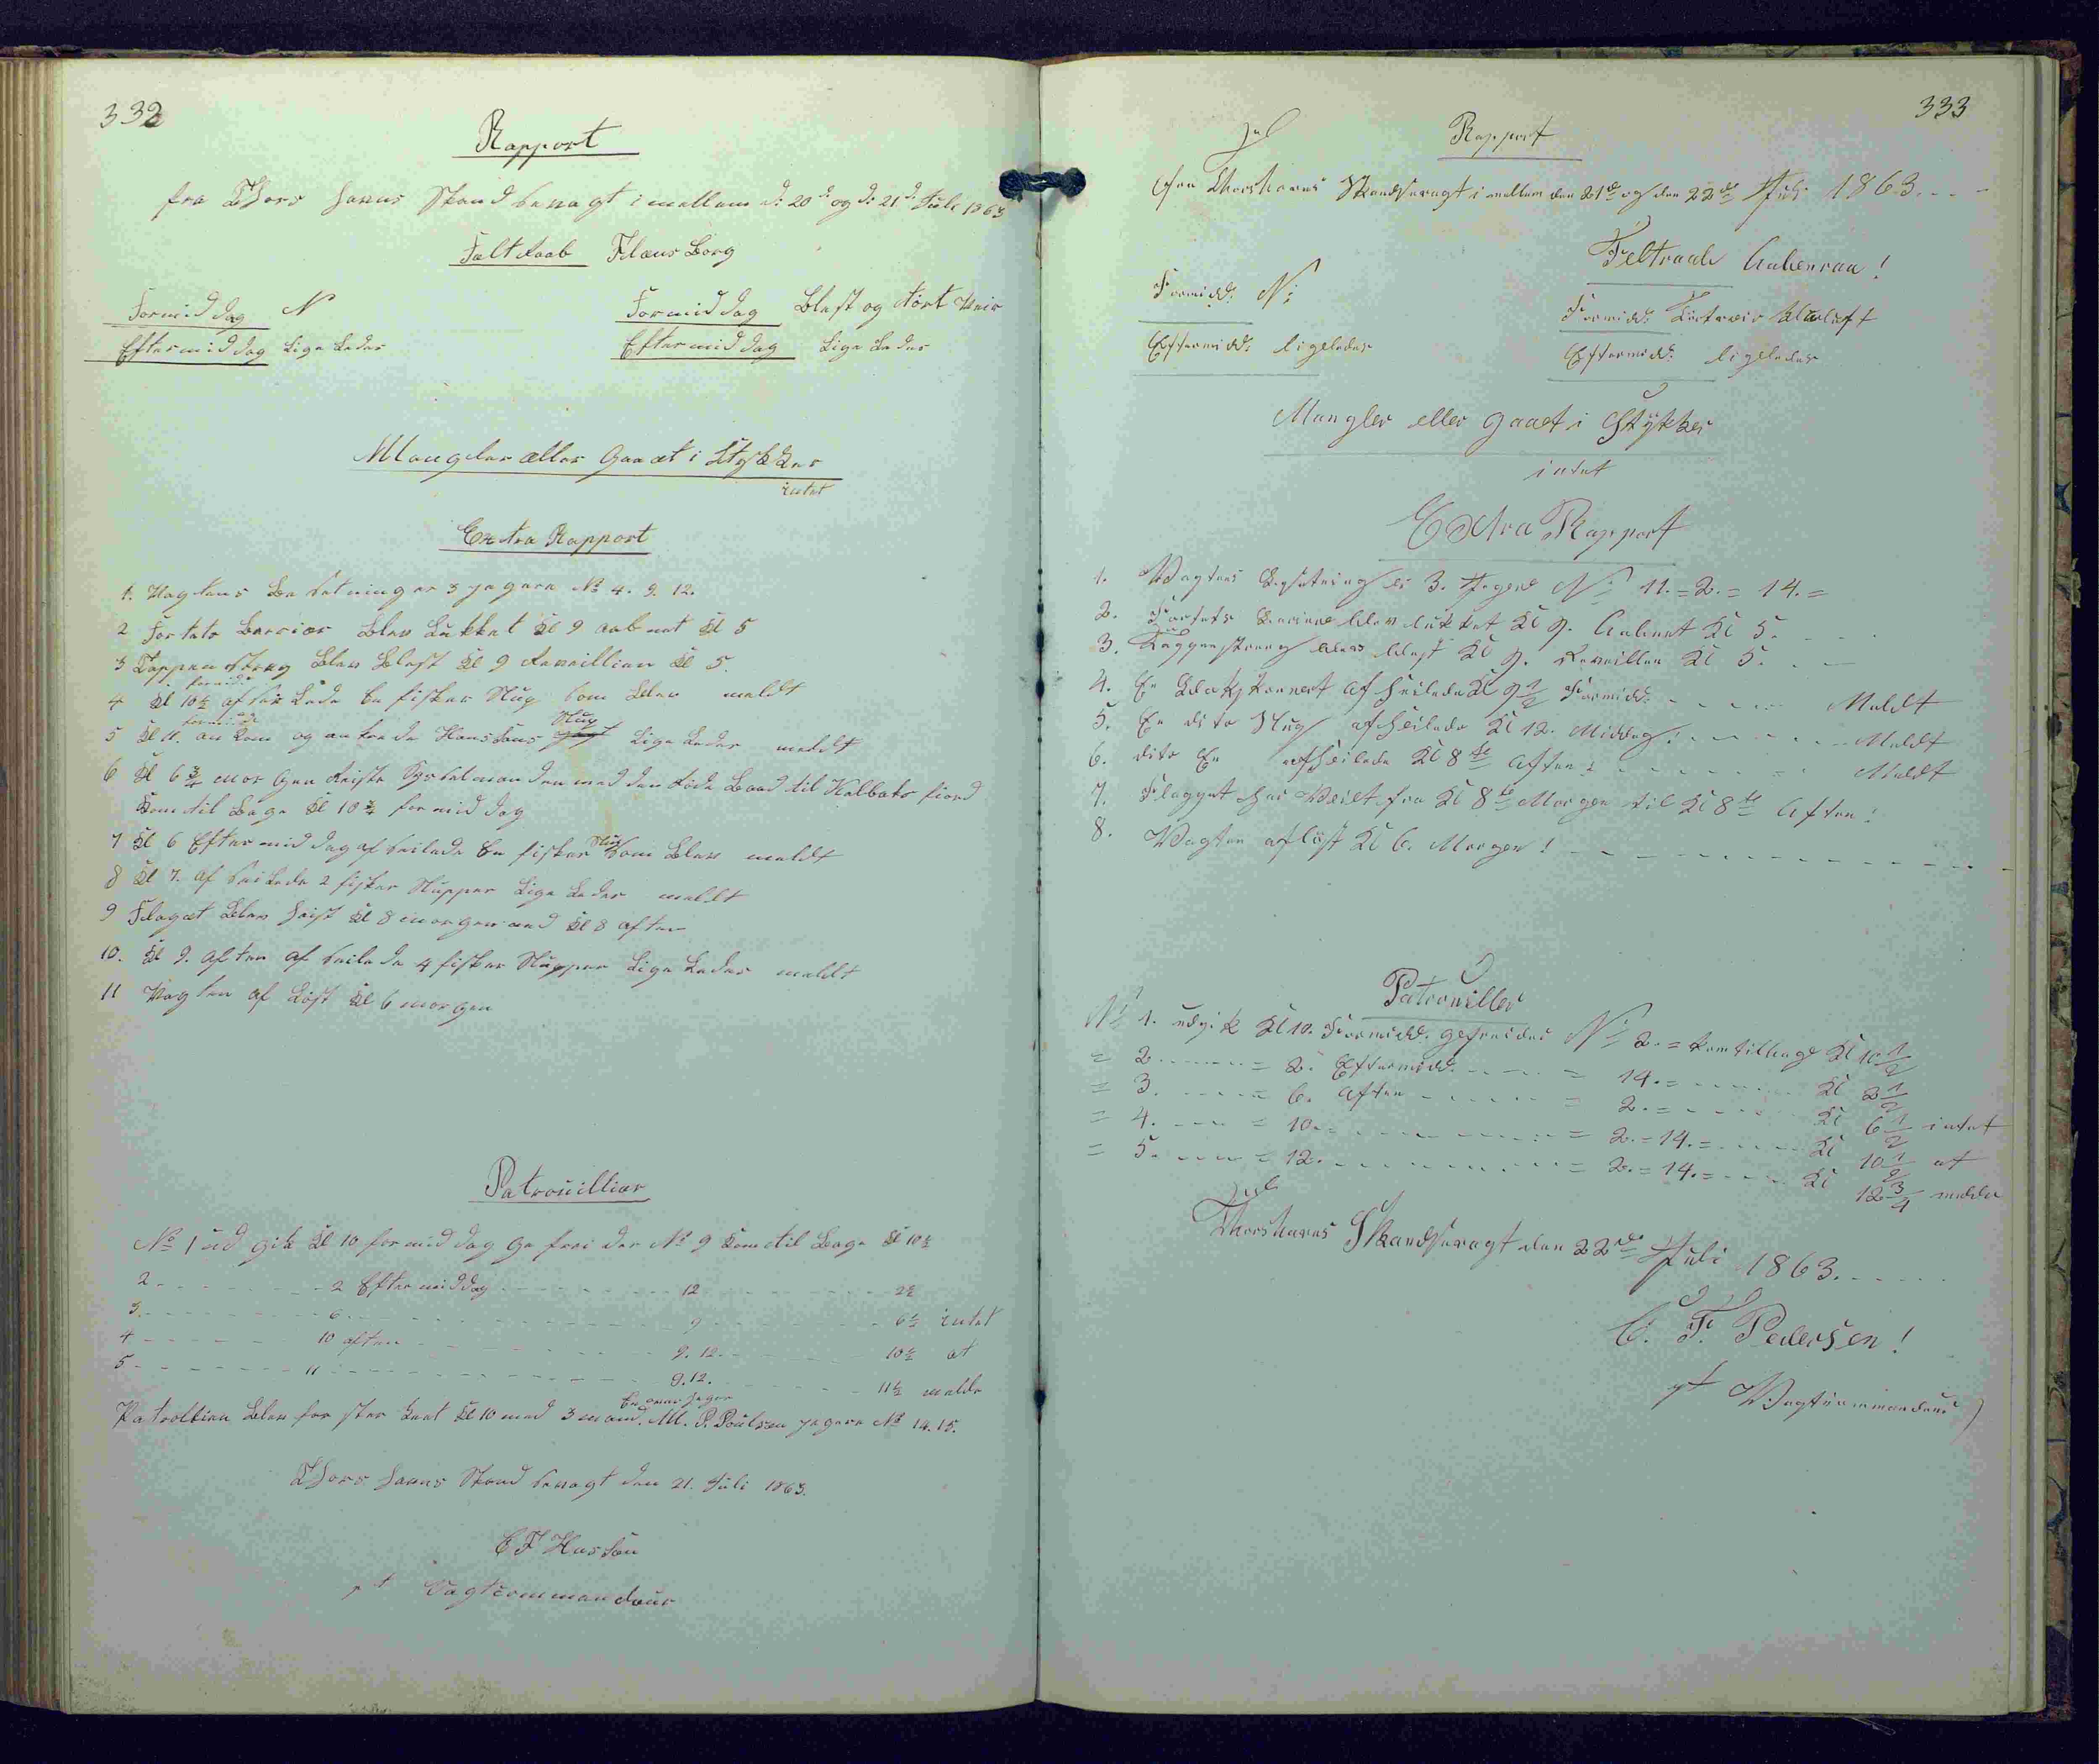 332
Rapport
fra Thors havns Skandsevagt imellem d: 20d og d: 21d Juli 1863
Feltraab Flensborg
Formiddag N Formiddag Blæst og tört Veir
Eftermiddag Lige Ledes Eftermiddag Lige Ledes
Mangler eller Gaaet i Stykker
intet
Extra Rapport
1. Vagtens Besetning er 3 jegere No 4. 9. 12.
2 Fortets Barrier blev Lukket Kl 9 aabnet Kl 5
3 Tappenstreg blev blest Kl 9 Reveillien Kl 5.
formid
4 Kl 10½ afseilede En fisker Slup som blev meldt
formid Slup
5 Kl 11. an kom og ankrede Lige Ledes meldt
6 Kl 6¾ mor gen reiste Sysselmanden med den Baad til Kalbaks fiord
kom til Bage Kl 10¾ formiddag
7 Kl 6 Eftermiddag af seilede En fisker Slup som blev meldt
8 Kl 7. af seilede 2 fisker Slupper Lige Ledes meldt
9 Flaget blev heist Kl 8 morgen ned Kl 8 aften
10. Kl 9. aften af seilede 4 fisker Slupper Lige Ledes meldt
11 Vagten af Löst Kl 6 morgen
Patrouillier
No 1 ud gik Kl 10 formiddag gefreider No 9 kom til Bage Kl 10½
2 - - - 2 Eftermiddag - - - 12 - - - 2½
3. - - - 6 - - - 9 - - - 6½ intet
4 - - - 10 aften - - - 9. 12. - - - 10½ at
5 - - - 11 - - - 9. 12. - - - 11½ melde
Patrollien blev for ster ket Kl 10 med 3 mand. M. P. Poulsen jegere No 14. 15.
Thors havns Skandsevagt den 21. Juli 1863.
C F Hansen
pt Vagtcommandeur
333
Rapport
fra Thorshavns Skandsevagt imellem den 21de og den 22de Juli 1863. - - -
Feltraab Aabenraa!
Formidd: N: Formidd: Tört veir
Eftermidd: ligeledes Eftermidd: ligeledes
Mangler eller gaaet i Stykker
intet
Extra Rapport
1. Vagtens Besetning er 3. Jegere No 11. = 2. = 14. =
2. Fortets Barriere blev lukket Kl 9. Aabnet Kl 5. - - -
3. Tappenstreeg blev blest Kl 9. Reveillen Kl 5. - -
4. En afseilede Kl 9½ Formidd: - - - Meldt
5. En dito Slup afseilede Kl 12. Middag: - - - Meldt
6. dito En afseilede Kl 8te Aften: - - - Meldt
7. Flagget har Veiet fra Kl 8te Morgen til Kl 8te Aften!
8. Vagten aflöst Kl 6. Morgen! - - -
Patrouiller
No 1. udgik Kl 10. Formidd. gefreider No 2. = kom tilbage Kl 10½
= 2. - - - = 2. Eftermidd. - - - = 14. = - - - Kl 2½
= 3. - - - = 6. Aften - - - = 2. = - - - Kl 6½ intet
= 4. - - - = 10. - - - = 2. = 14. = - - - Kl 10½ at
= 5. - - - = 12. - - - = 2. = 14. = - - - Kl 12¾ melde
Thorshavns Skandsevagt den 22de Juli 1863. - - -
C. F. Pedersen!
pt Vagtcommandeur